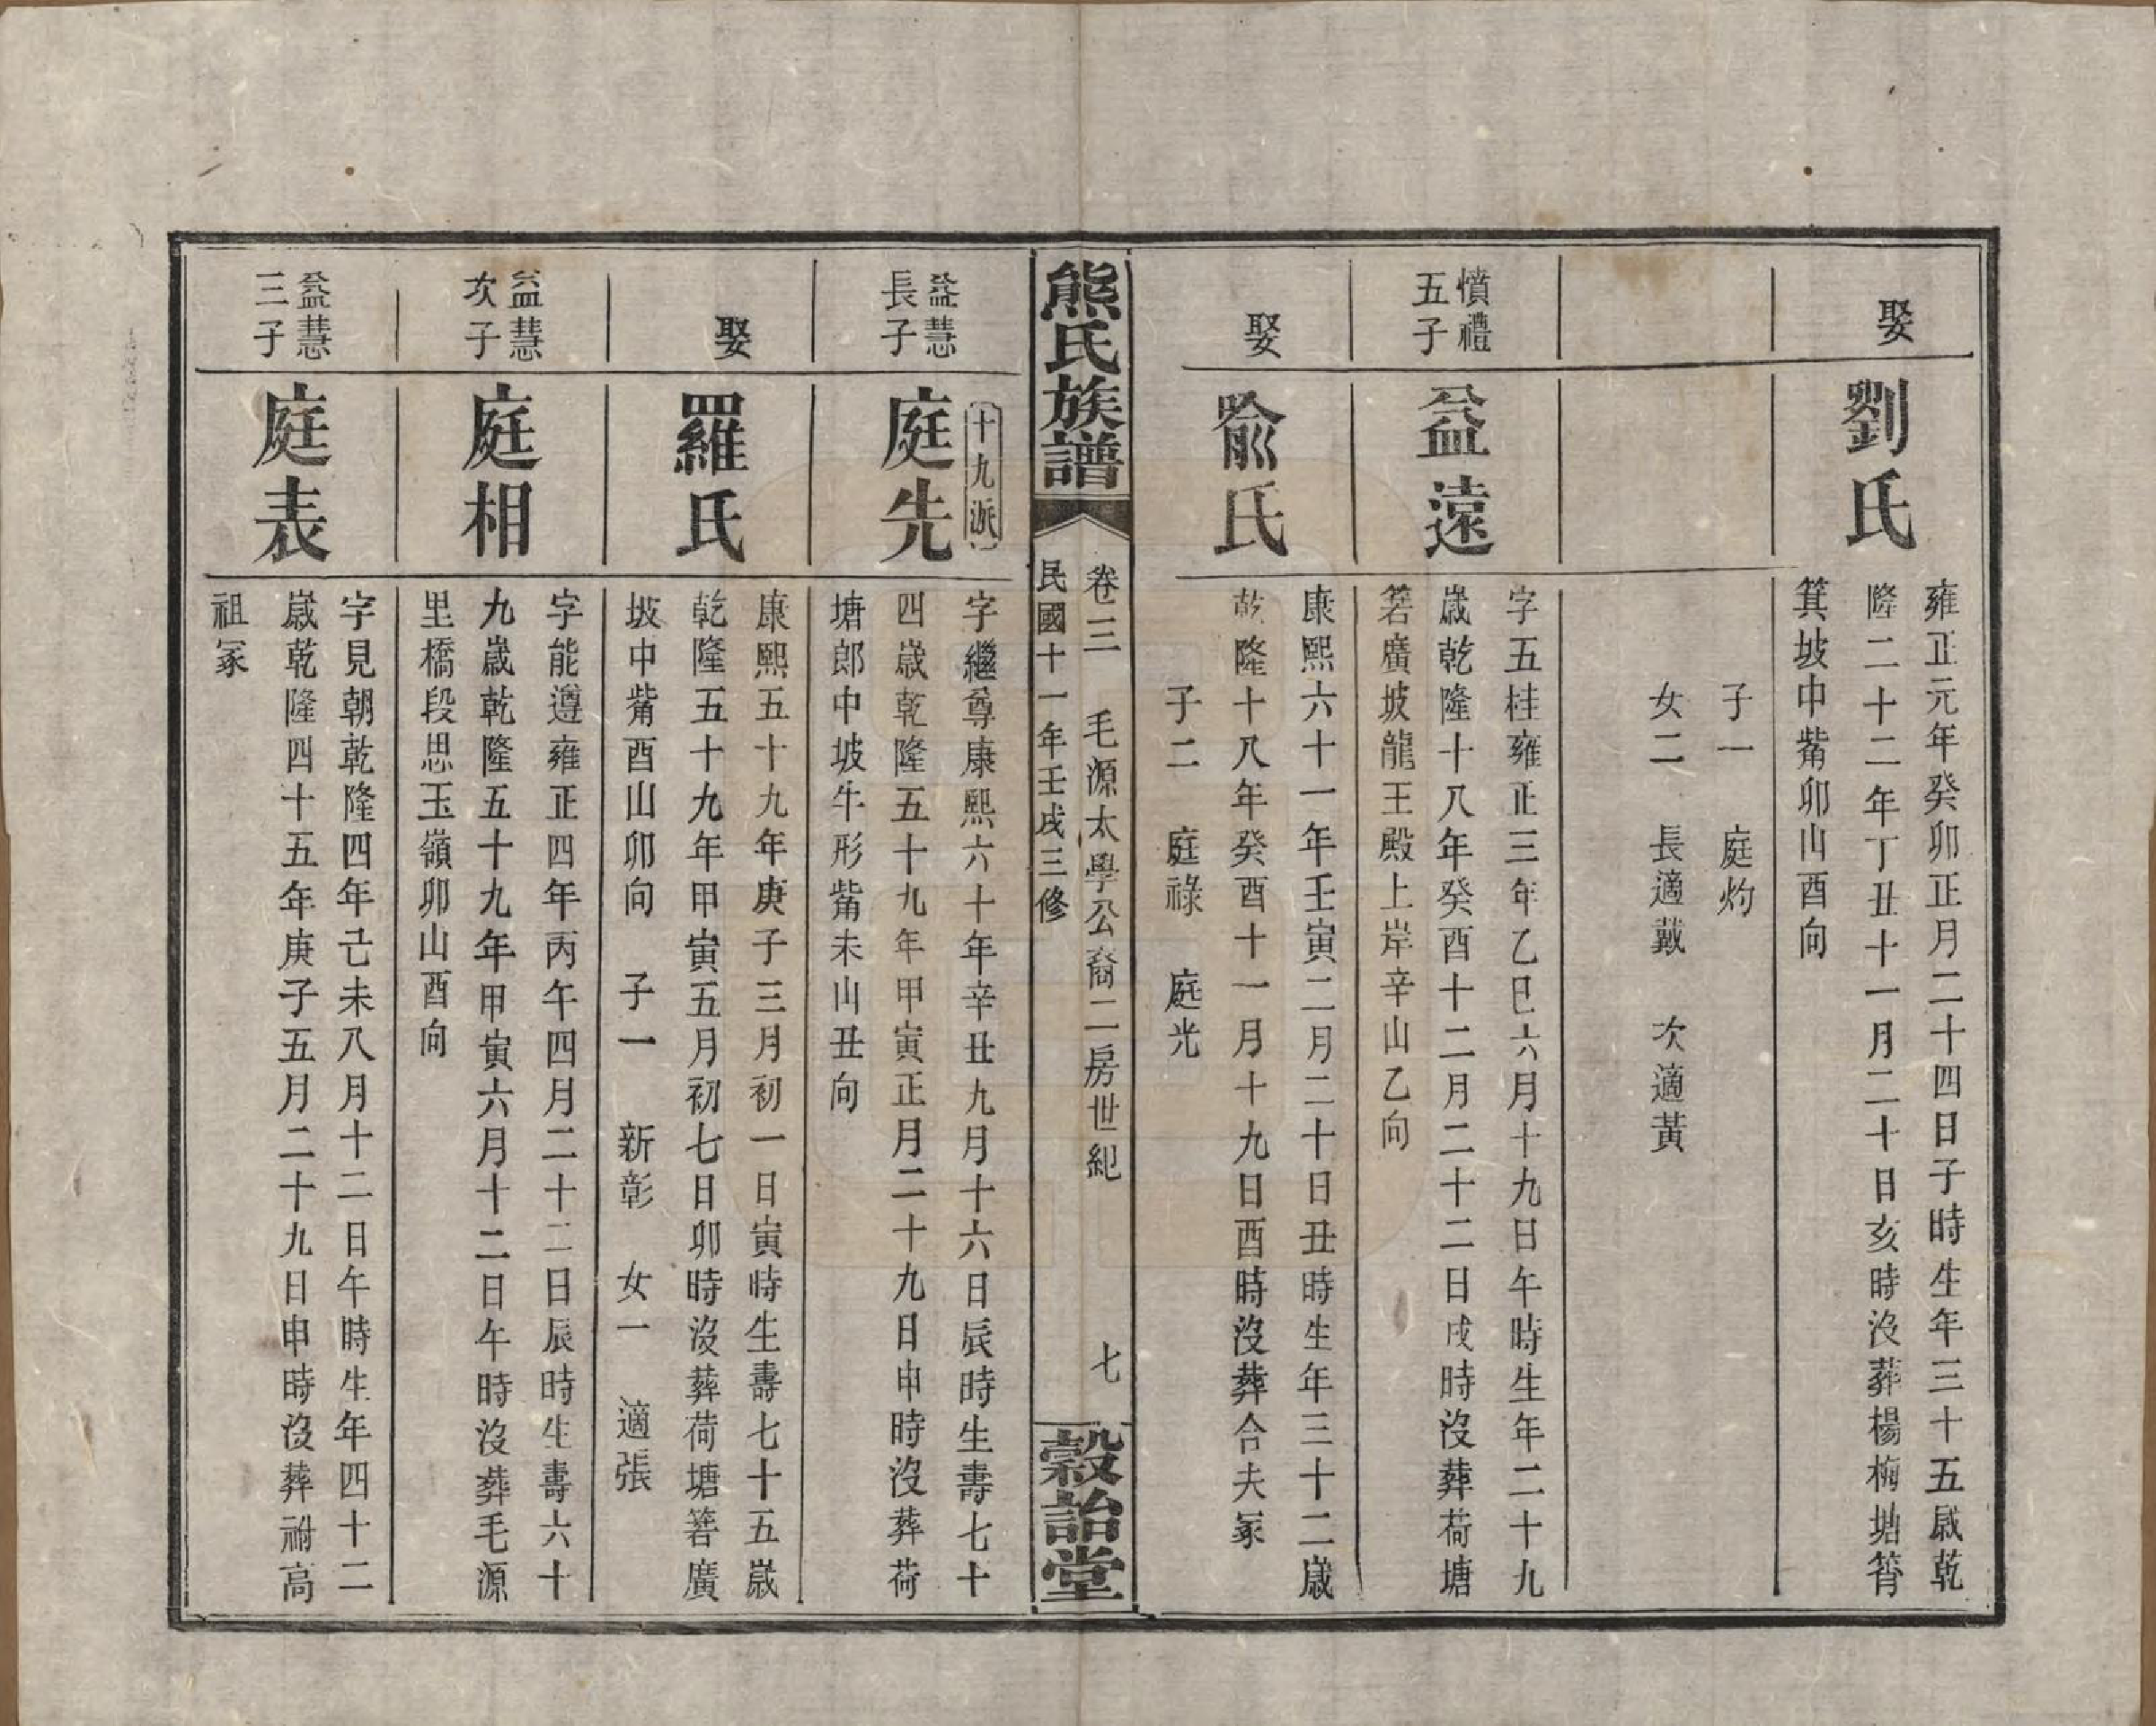 娶
劉氏
雍正元年癸卯正月二十四日子時生年三十五歲乾
隆二十二年丁丑十一月二十日亥時沒葬楊梅塘筲
箕坡中觜卯山酉向
子一　庭灼
女二　長適戴　次適黃
憤禮
五子
益遠
字五桂雍正三年乙巳六月十九日午時生年二十九
歲乾隆十八年癸酉十二月二十二日戌時沒葬荷塘
箬廣坡龍王殿上岸辛山乙向
娶
喻氏
康熙六十一年壬寅二月二十日丑時生年三十二歲
乾隆十八年癸酉十一月十九日酉時沒葬合夫冢
子二　庭祿　庭光
熊氏族譜
卷三　毛源太學公裔二房世紀　七
民國十一年壬戌三修
穀詒堂
益慧
長子
十九派
庭先
字繼尊康熙六十年辛丑九月十六日辰時生壽七十
四歲乾隆五十九年甲寅正月二十九日申時沒葬荷
塘郎中坡牛形觜未山丑向
娶
羅氏
康熙五十九年庚子三月初一日寅時生壽七十五歲
乾隆五十九年甲寅五月初七日卯時沒葬荷塘箬廣
坡中觜酉山卯向　子一　新彰　女一　適張
益慧
次子
庭相
字能遵雍正四年丙午四月二十二日辰時生壽六十
九歲乾隆五十九年甲寅六月十二日午時沒葬毛源
里橋段思玉嶺卯山酉向
益慧
三子
庭表
字見朝乾隆四年己未八月十二日午時生年四十二
歲乾隆四十五年庚子五月二十九日申時沒葬祔高
祖冢